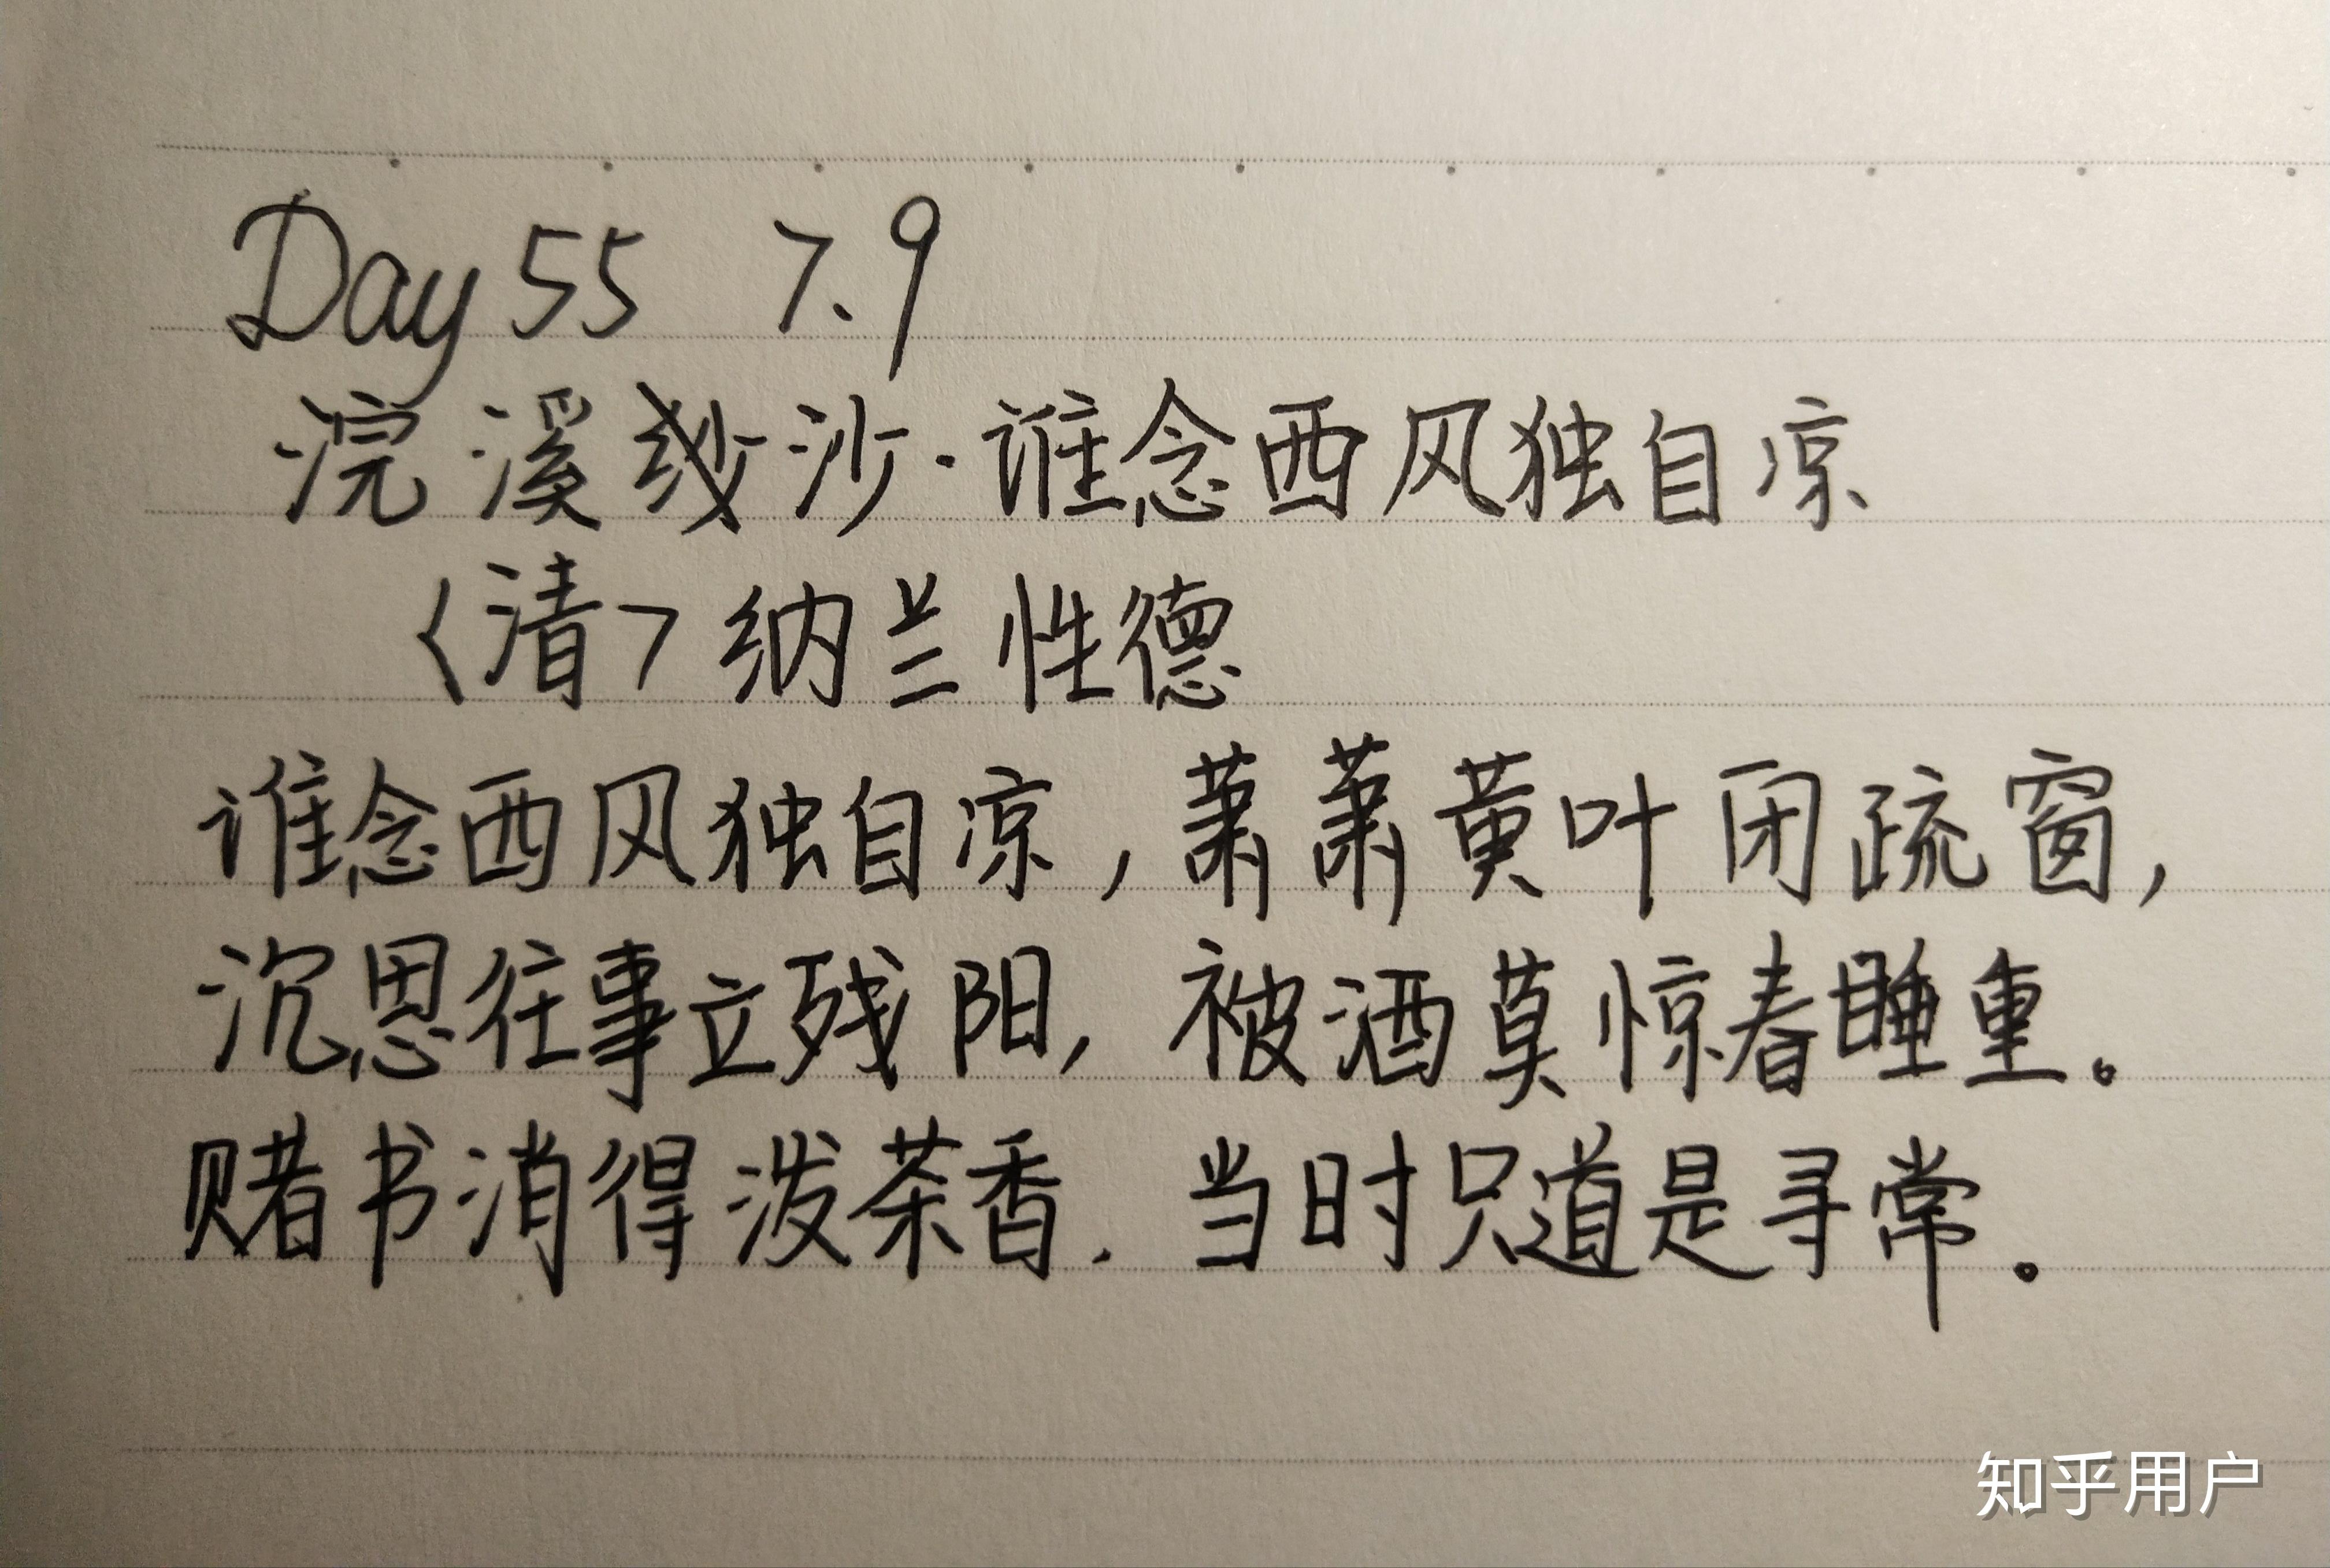 Day 55 7.9
浣溪沙·谁念西风独自凉
〈清〉纳兰性德
谁念西风独自凉，萧萧黄叶闭疏窗，
沉思往事立残阳，被酒莫惊春睡重。
赌书消得泼茶香.当时只道是寻常。
知乎用户